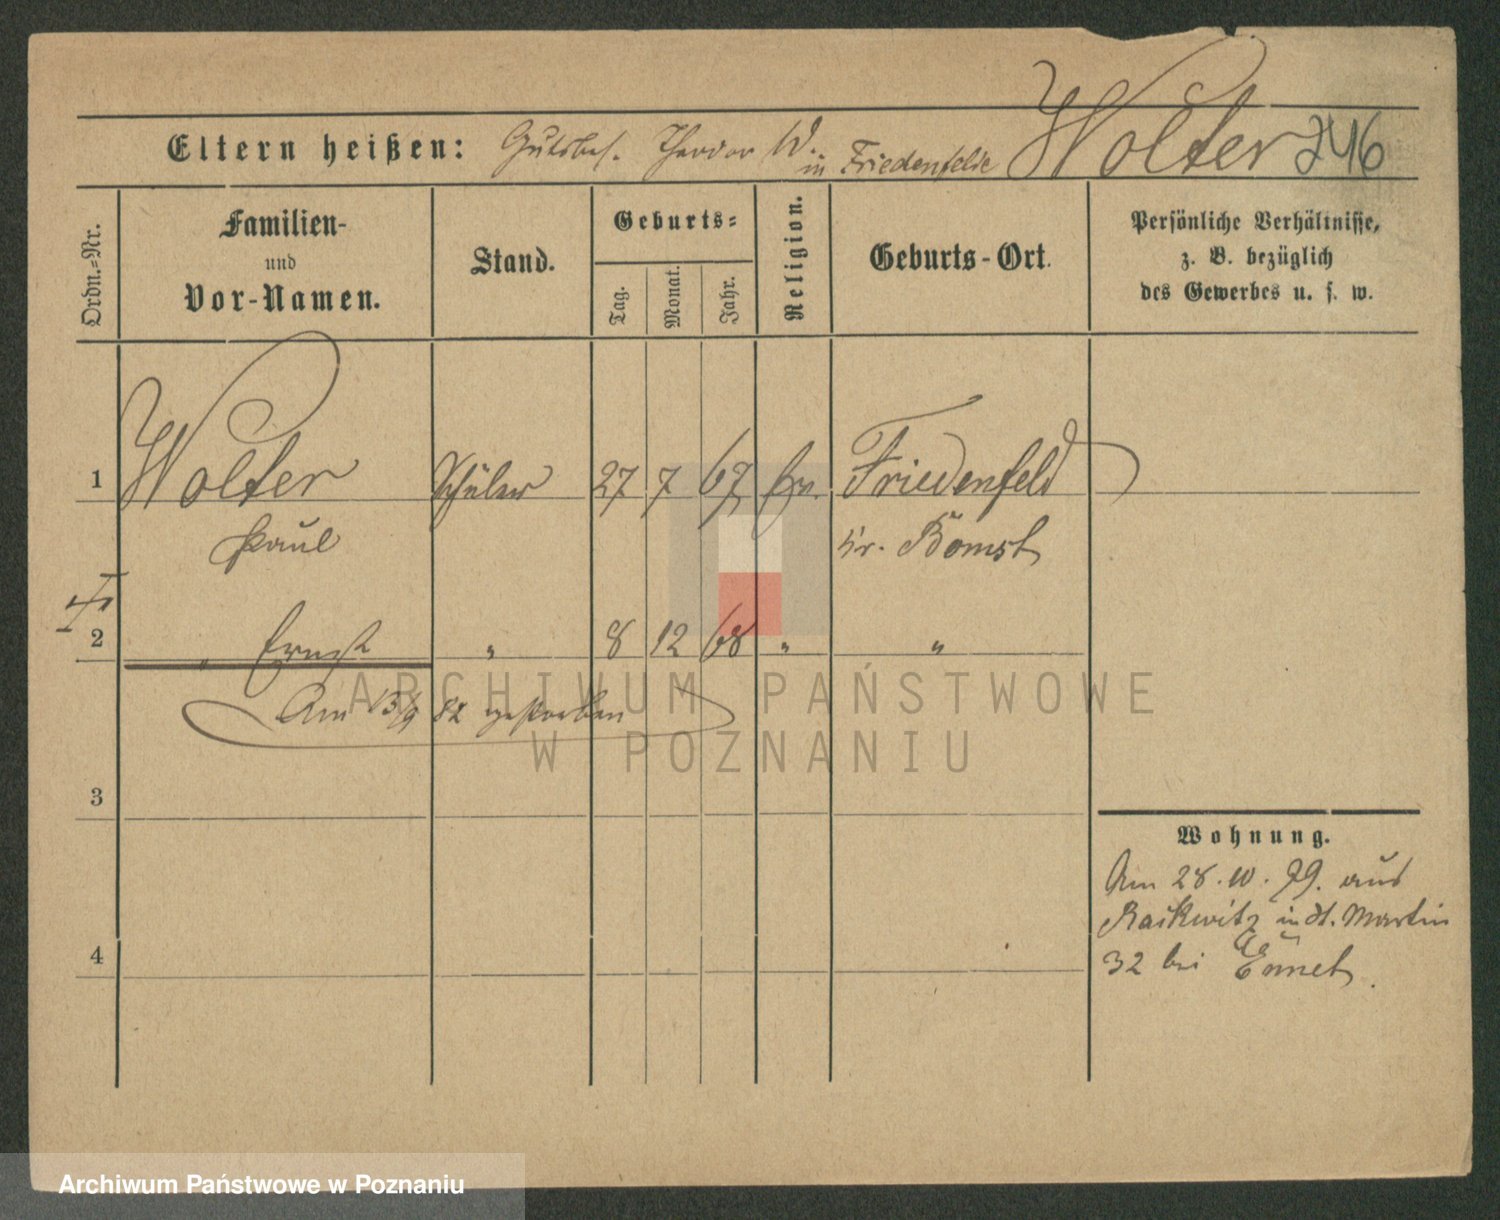 Wolter 246
Eltern heißen: Gutsbes. Theodor W. in Friedenfelde
Ordn.-Nr.
Familien-
und
Vor-Namen.
Stand.
Geburts-
Tag.
Monat.
Jahr.
Religion.
Geburts-Ort.
Persönliche Verhältnisse,
z. B. bezüglich
des Gewerbes u. s. w.
1 Wolter Schüler 27 7 67 Friedenfeld
Paul Kr. Bomst
2 " Ernst " 8 12 68 " "
Am 13/9 82 gestorben
3
4
Wohnung.
Am 28.10.79. aus
in St. Martin
32 bei
ARCHIWUM PAŃSTWOWE
W POZNANIU
Archiwum Państwowe w Poznaniu